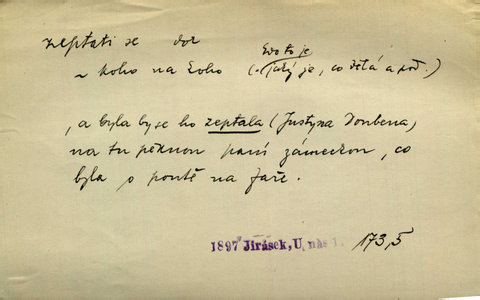 zeptati se dok
kdo to je
~ koho na koho (jaký je, co dělá a pod.)
, a byla by se ho zeptala (Justyna Doubena)
na tu pěknou paní zámeckou, co
byla o pouti na faře.
1897 Jirásek, U nás I. 173,5